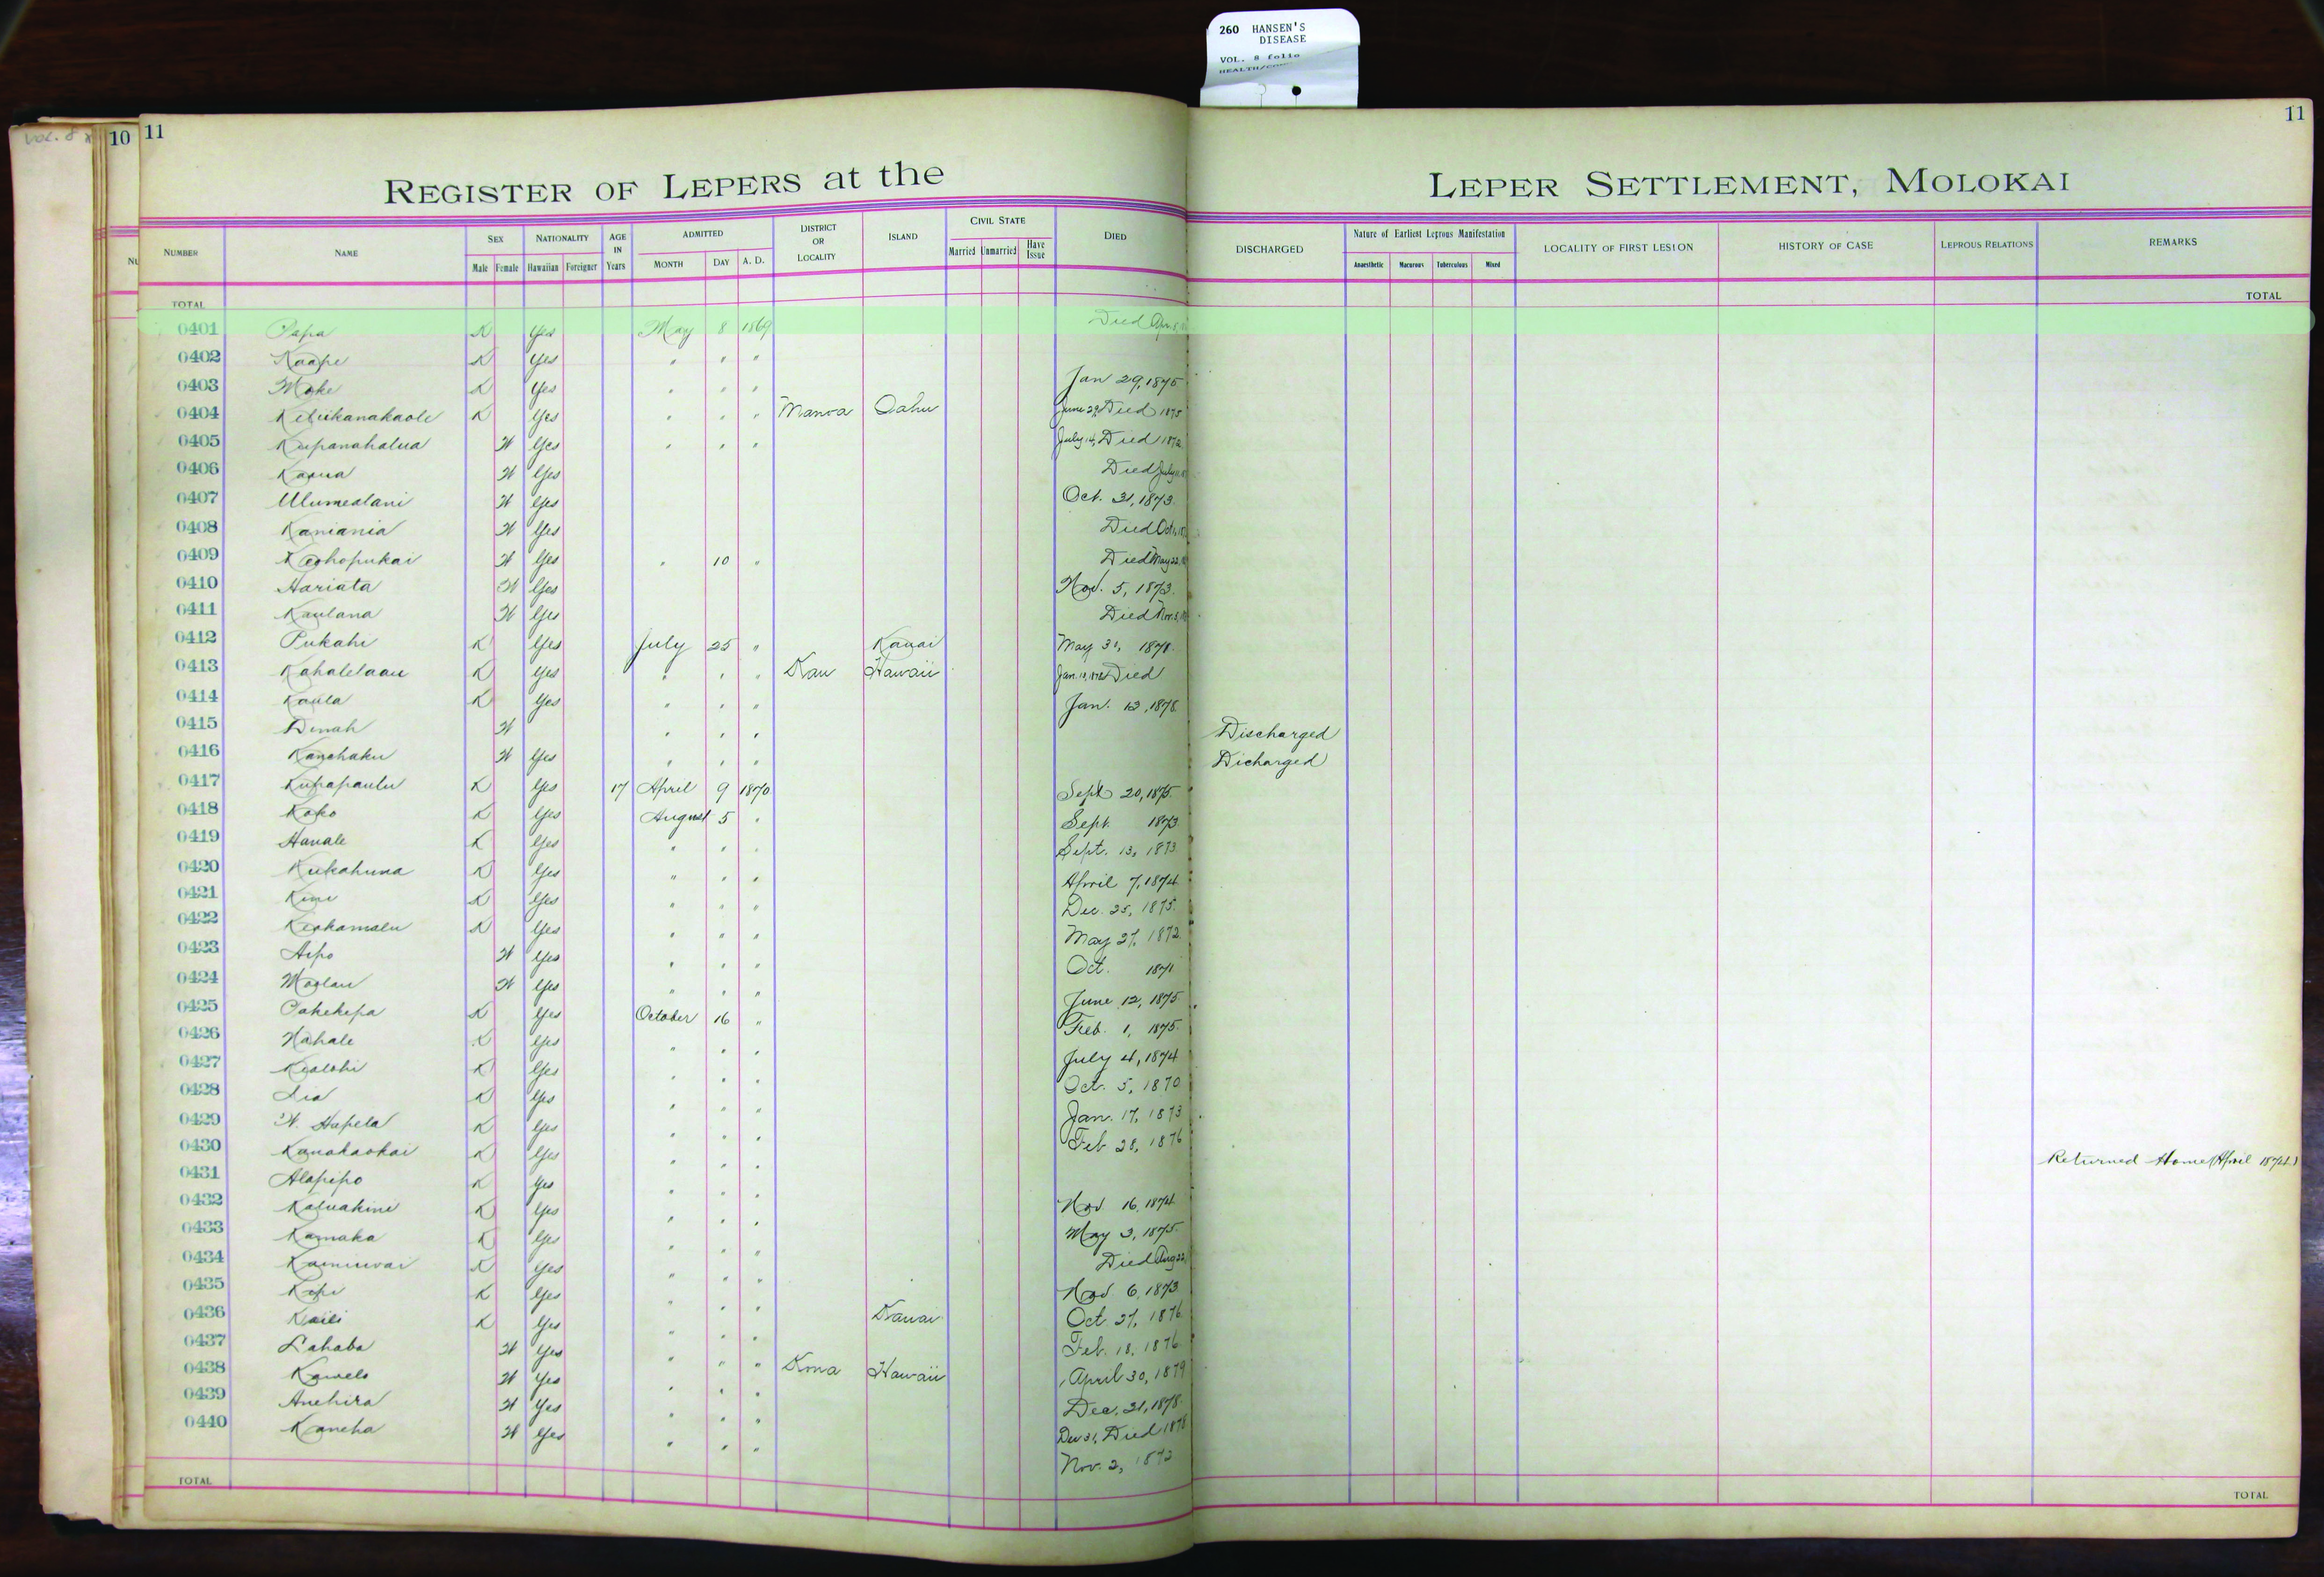 260 HANSEN'S
DISEASE
VOL. 8 folio
VOL. 8
10
11
11
REGISTER OF LEPERS at the LEPER SETTLEMENT, MOLOKAI
NUMBER NAME SEX Male Female NATIONALITY Hawaiian Foreigner AGE IN Years ADMITTED MONTH DAY A. D. DISTRICT OR LOCALITY ISLAND CIVIL STATE Married Unmarried Have Issue DIED DISCHARGED Nature of Earliest Leprous Manifestation Anaesthetic Macurous Tuberculous Mixed LOCALITY OF FIRST LESION HISTORY OF CASE LEPROUS RELATIONS REMARKS
TOTAL TOTAL
0401 Papa K Yes May 8 1869 Died Apr. 8,
0402 Kaape K Yes " " "
0403 Moke K Yes " " " Jan 29, 1875
0404 Keliikanakaole K Yes " " " Manoa Oahu June 29, Died 1875
0405 Kupanahalua W Yes " " " July 14, Died 1872
0406 Kaaua W Yes Died July
0407 Ulumealani W Yes Oct. 31, 1873.
0408 Kaniania W Yes Died Oct.
0409 Keohopukai W Yes " 10 " Died May 22,
0410 Hariata W Yes Nov. 5, 1873.
0411 Kaulana W Yes Died Nov. 3,
0412 Pukahi K Yes July 25 " Kauai May 31, 1878.
0413 Kahalelaau K Yes " " " Kau Hawaii Died
0414 Kaula K Yes " " " Jan. 13, 1878.
0415 Dinah W " " " Discharged
0416 Kanohaku W Yes " " " Dicharged
0417 Kupapaulu K Yes 17 April 9 1870 Sept 20, 1875.
0418 Koko K Yes August 5 " Sept. 1873
0419 Hanale K Yes " " " Sept. 13, 1873
0420 Kukahuna K Yes " " " April 7, 1874
0421 Kini K Yes " " " Dec. 25, 1875.
0422 Keohamalu K Yes " " " May 27, 1872.
0423 Aipo W Yes " " " Oct. 1871
0424 Moolau W Yes " " " June 12, 1875
0425 Pakekepa K Yes October 16 " Feb. 1, 1875.
0426 Nahale K Yes " " " July 4, 1874
0427 Kealohi K Yes " " " Oct. 5, 1870
0428 Lia K Yes " " " Jan. 17, 1873
0429 W. Hapela K Yes " " " Feb 28, 1876
0430 Kanakaokai K Yes " " " Returned Home (April 1874.)
0431 Alapipo K Yes " " " Nov. 16, 1874
0432 Kaluakini K Yes " " " May 3, 1875.
0433 Kamaka K Yes " " " Died Aug 22,
0434 Kainuwai K Yes " " " Nov. 6, 1873
0435 Kopi K Yes " " " Oct. 27, 1876
0436 Kaili K Yes " " " Kauai Feb. 18, 1876
0437 Lahaba W Yes " " " Kona Hawaii April 30, 1879
0438 Kawelo W Yes " " " Dec. 31, 1878.
0439 Anehira W Yes " " " Dec 31, Died 1878
0440 Kaneha W Yes " " " Nov. 2, 1872
TOTAL TOTAL